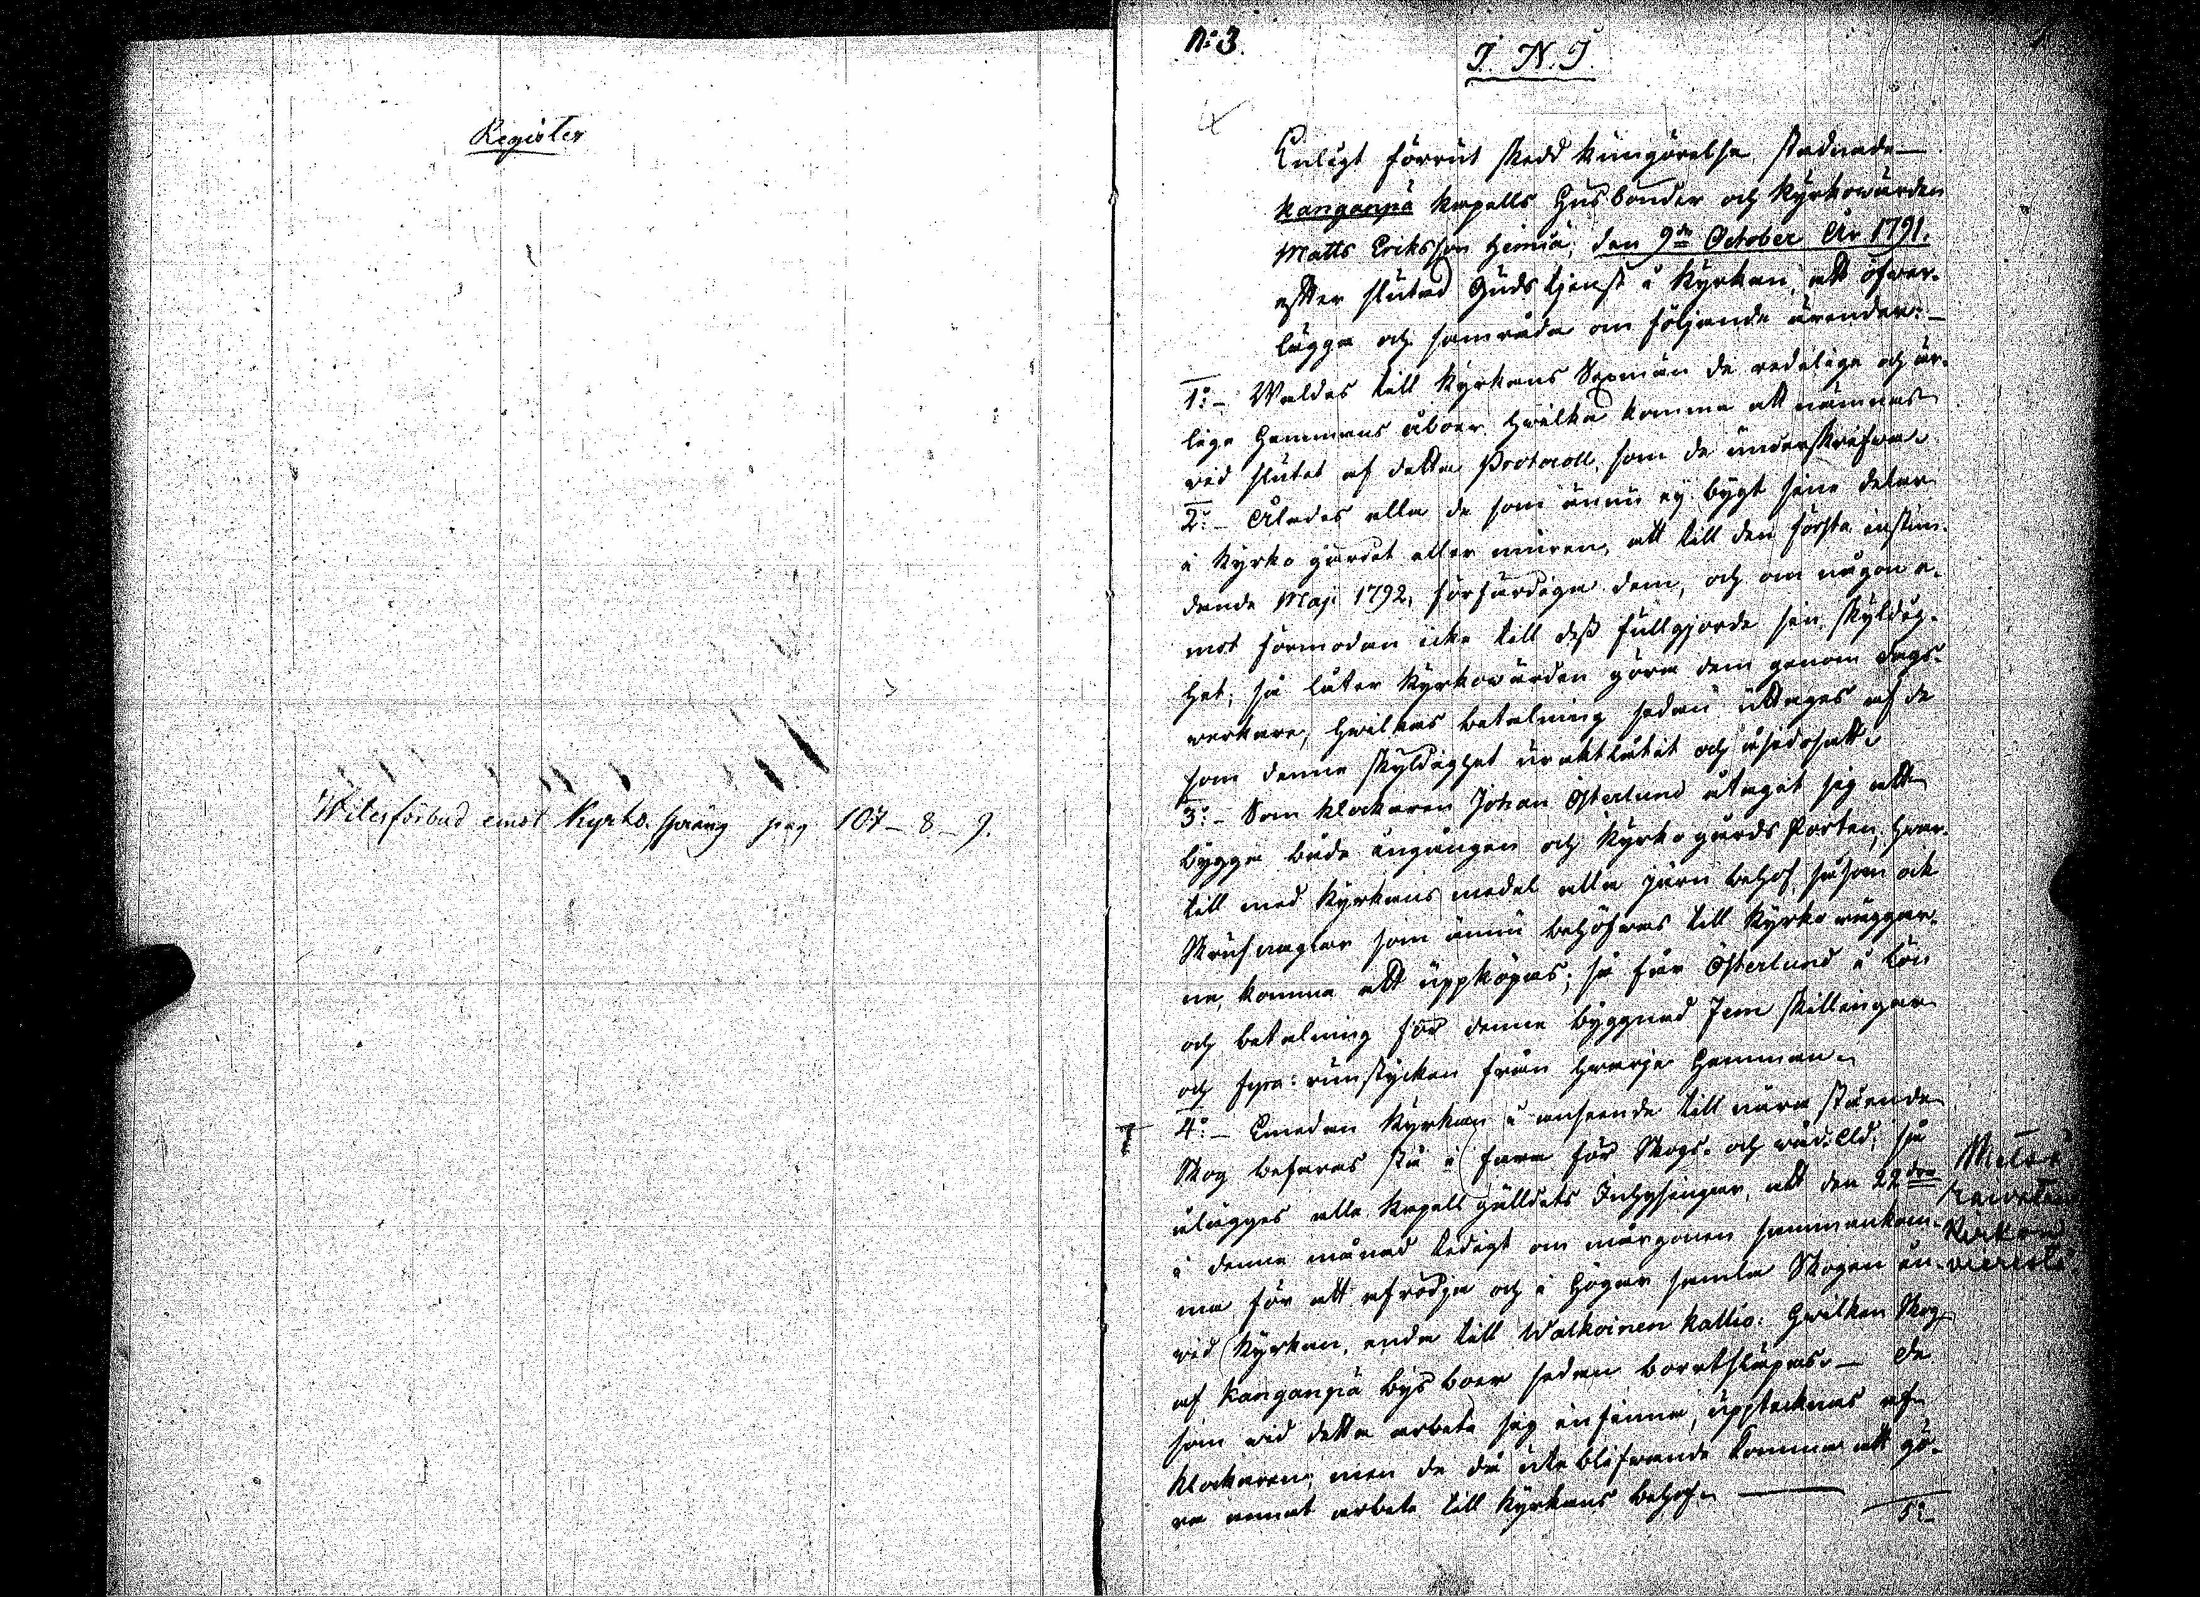 Register
Witesförbud emot Kyrko spräng pag 107 - 8 - 9.
N:o 3.
I. N. J.
Enligt förrut skedd kungörelse, stadnade
Kanganpä Kapells Husbönder och Kyrkowärden
Matts Eriksson Heiniä, den 9de October År 1791.
efter slutad Gudstjenst i Kyrkan, att öfwer-
lägga och samråda om följande ärender:
1:o Waldes till Kyrkans Sexmän de redelige och är-
lige Hemmans åboer hwilka komma att nämnas
wid slutet af detta Protocoll, som de underskrifwa.
2:o Ålades alla de som ännu ej bygt sine delar
i Kyrko gärdet eller muren, att till den första instun-
dande Maji 1792, förfärdiga dem, och om någon e-
mot förmodan icke till dess fullgjorde sin skyldig-
het, så låter Kyrkowärden göra dem genom dags-
werkare, hwilkas betalning sedan uttages af de
som denna skyldighet uraktlåtit och åsidosatt.
3:o Som Klockaren Johan Österlund åtagit sig att
bygga både ingången och Kyrkogårds Porten, hwar-
till med Kyrkans medel alla järn behof, såsom ock
Skrufnaglar som ännu behöfwas till Kyrko wäggar-
na, komma att uppköpas; så får Österlund i lön
och betalning för denna byggnad Fem skillingar
och fyra runstycken från hwarje Hemman.
4:o Emedan Kyrkan i anseende till nära stående
Skog befaras stå i fara för Skogs- och wåd-Eld, så
ålägges alla Kapell gälldets Inhysingar, att den 22dra
i denna månad tidigt om morgonen sammankom-
ma för att afrödja och i högar samla Skogen in-
wid Kyrkan, ända till Walkoinen kallio. hwilken Skog
af Kanganpä bys boer sedan bortsläpas. De
som wid detta arbete sig infinna, upptecknas af
Klockaren, men de då uteblifwande komma att gö-
ra annat arbete till Kyrkans behof.
5:o
Metsä
raiwataan
Kirkon
wierestä